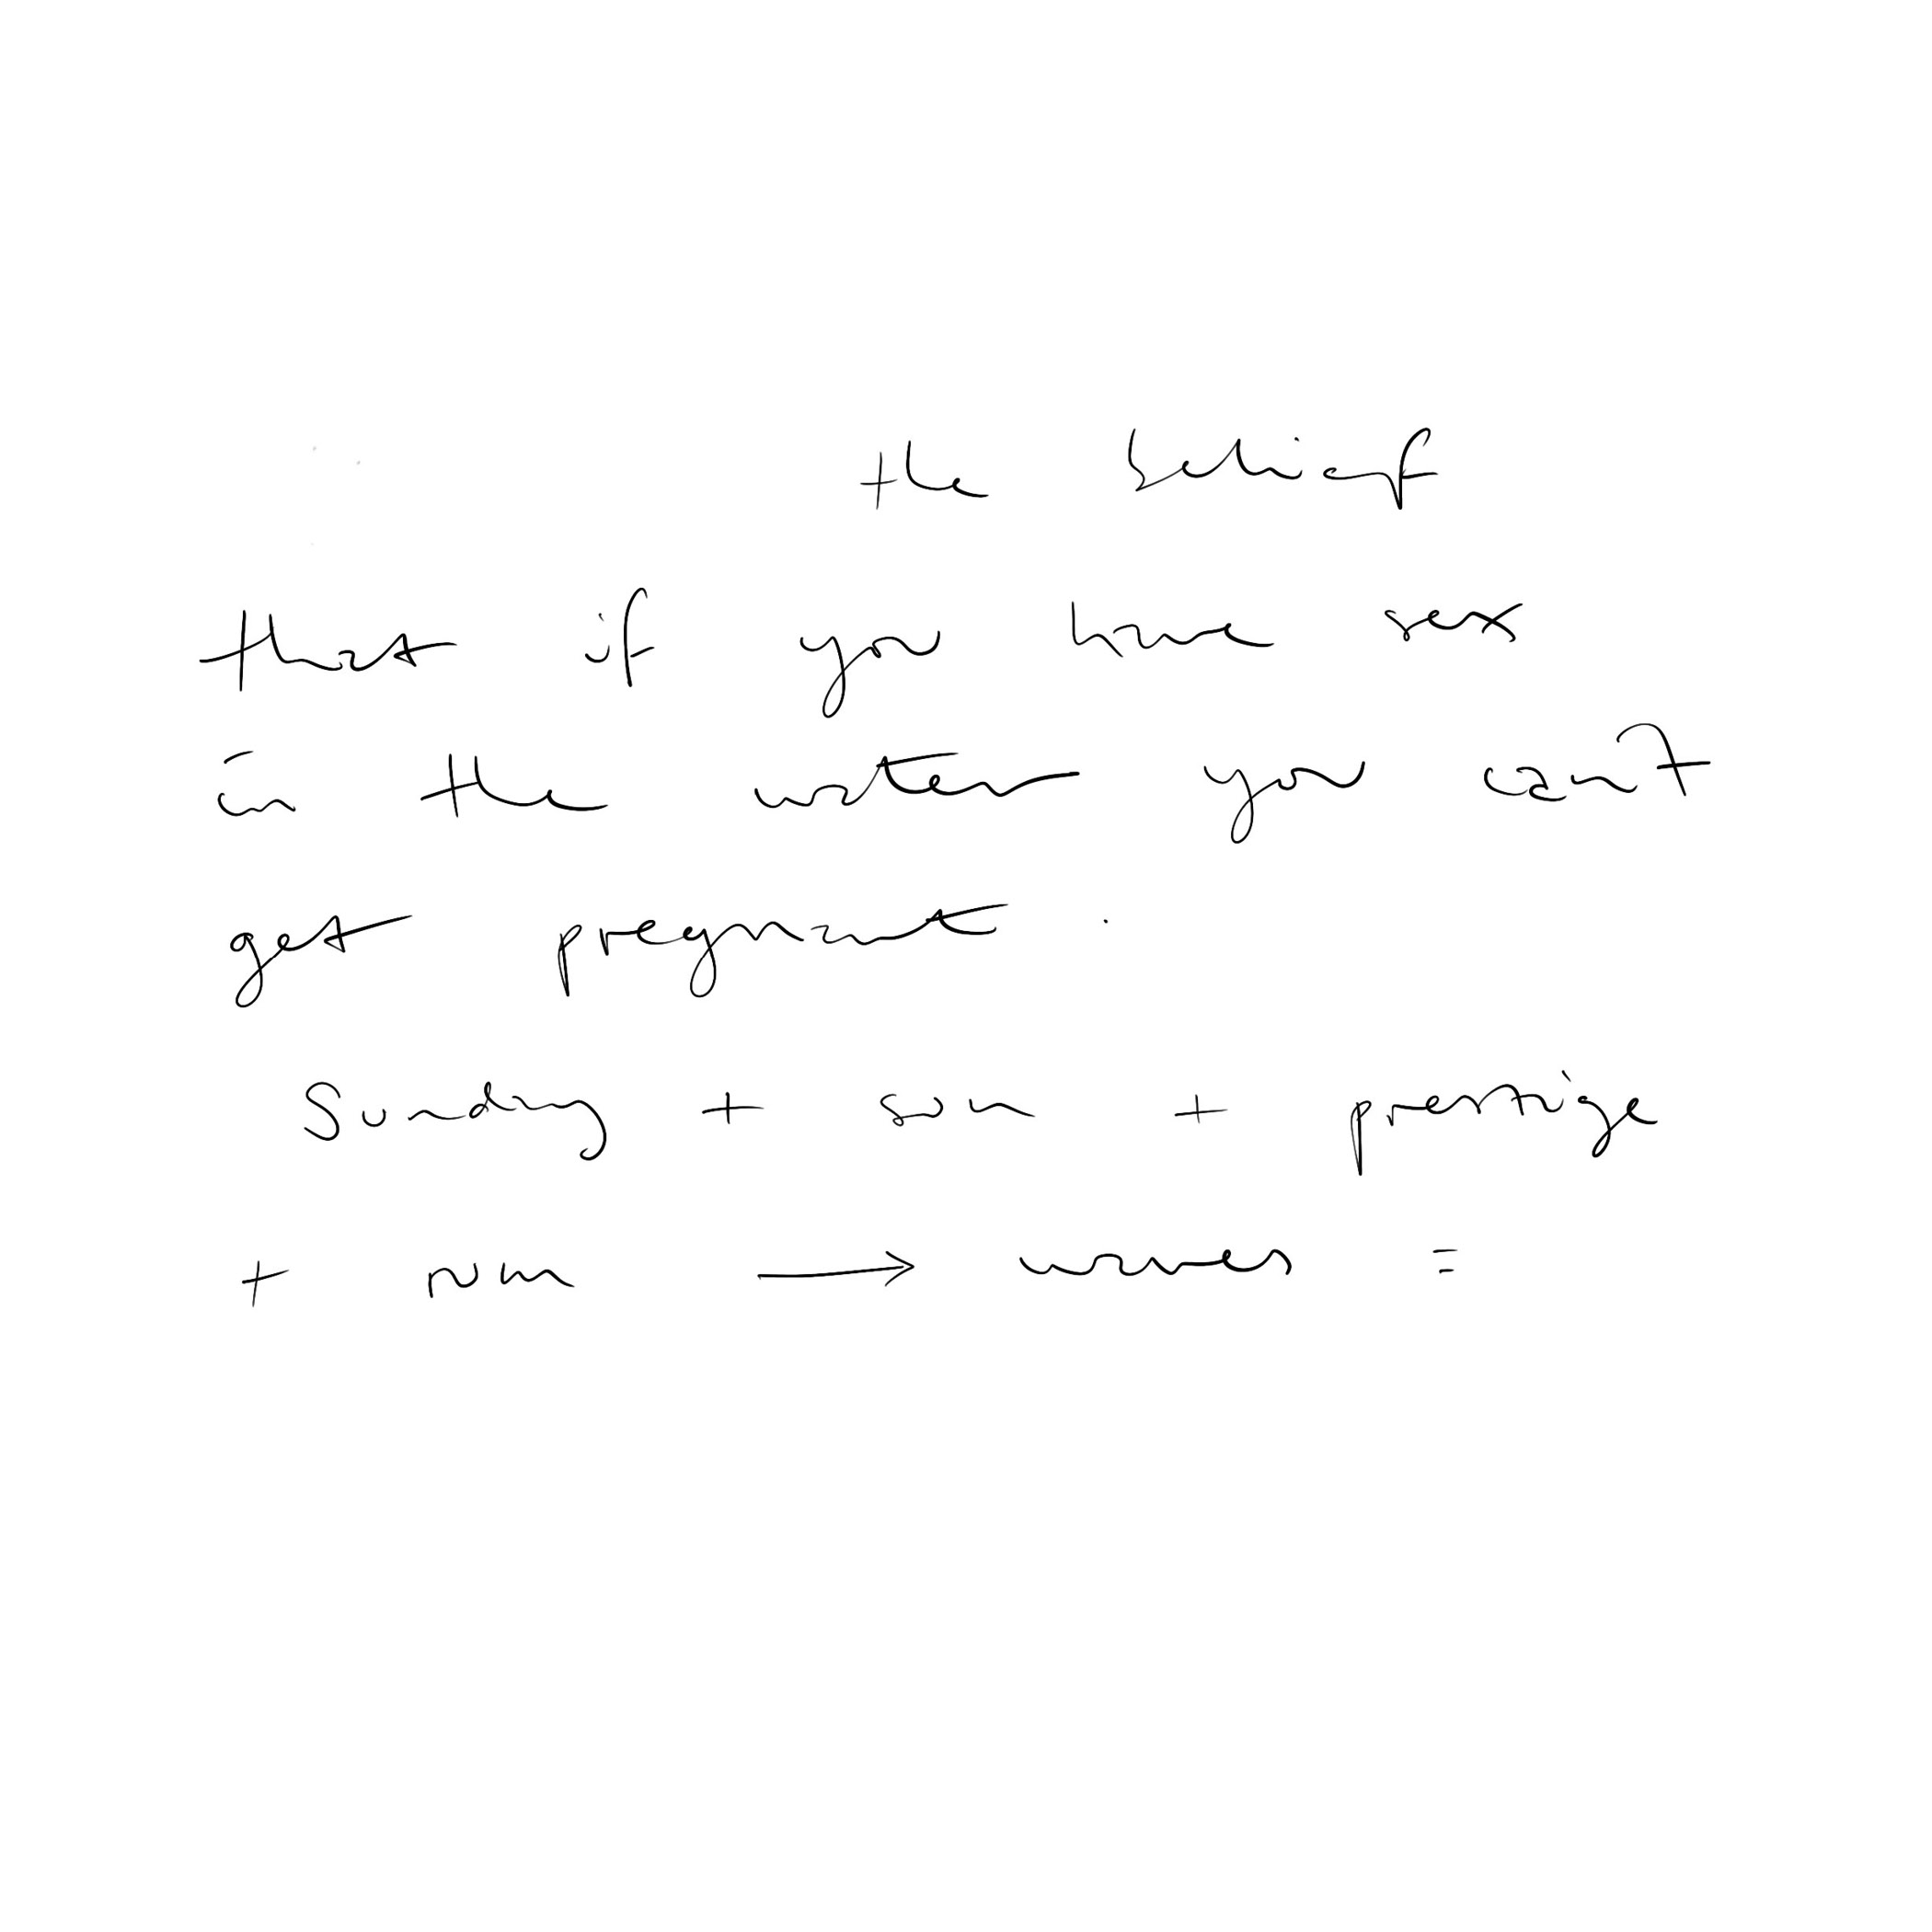 the belief
that if you have sex
in the water you can't
get pregnant .
Sunday + sun + prestige
+ rum → waves =